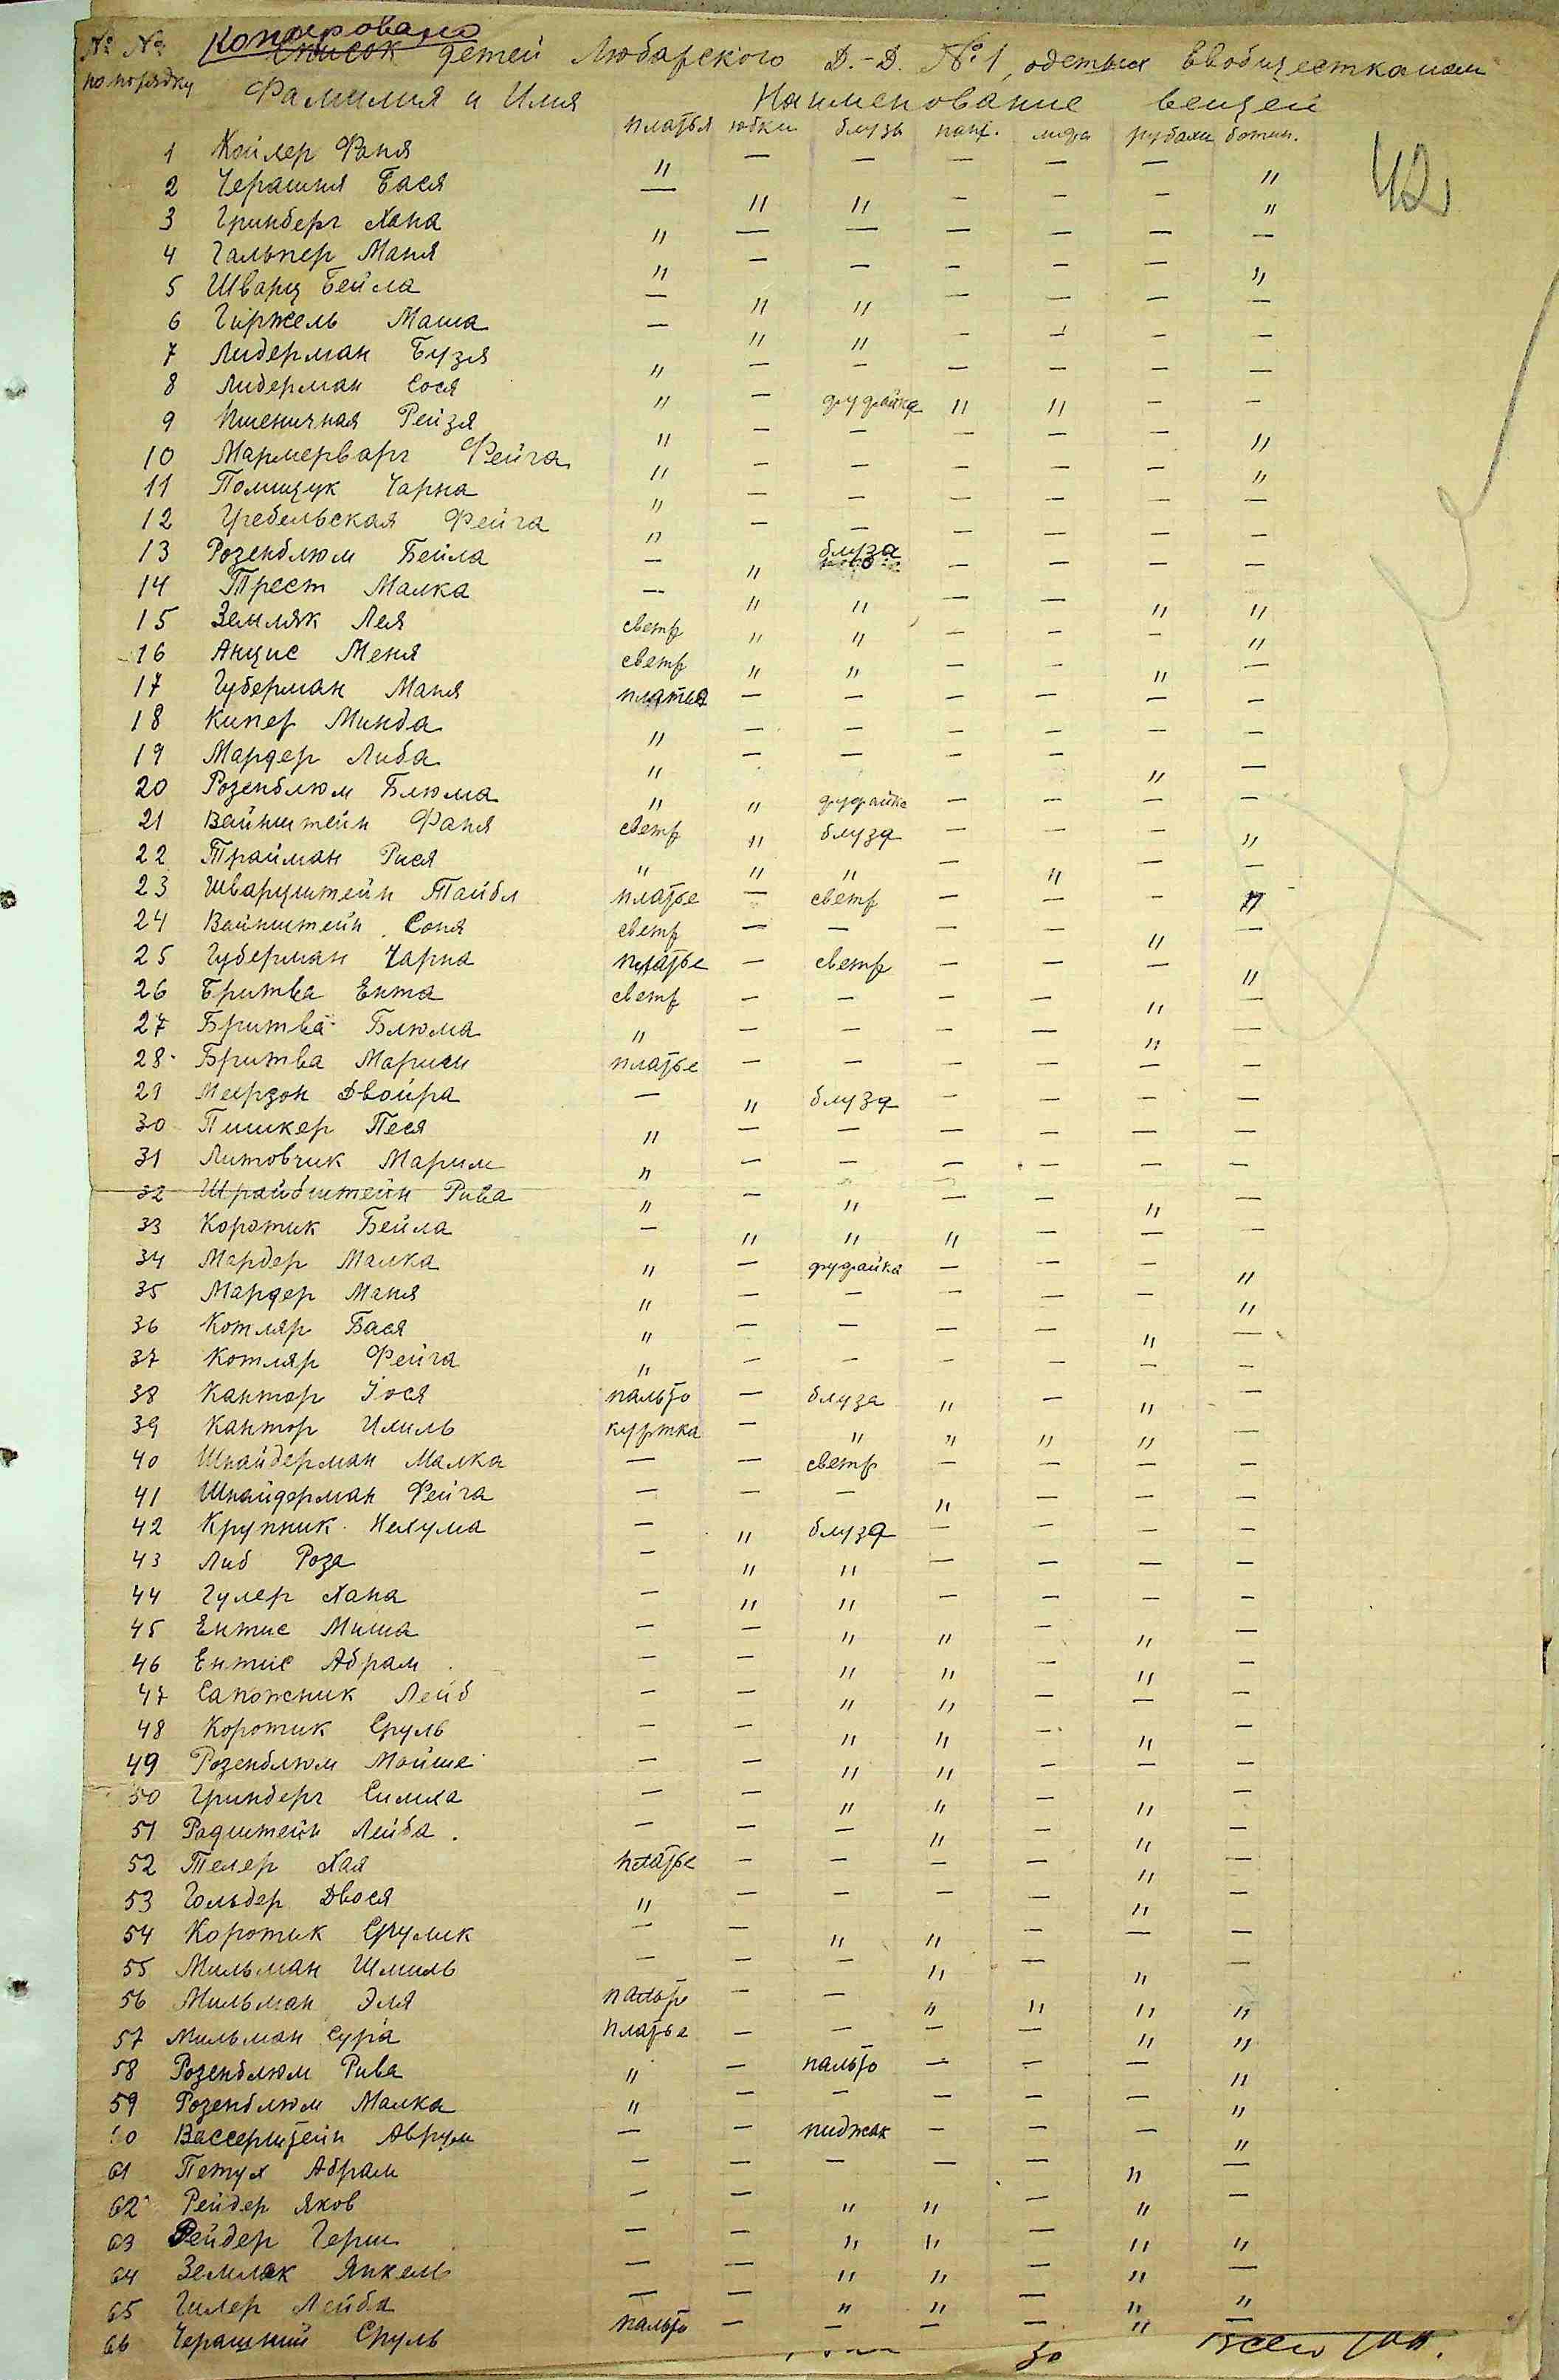 № № Копировано
по порядку Список детей Любарского Д.-Д. №1, одетых Евобщесткомом
Фамилия и Имя Наименование вещей
платья юбки блузы пант. лифа рубахи ботин.
42
1 Койлер Фаня " — — — — — "
2 Черашня Бася — " " — — — "
3 Гринберг Хана " — — — — — —
4 Гальпер Маня " — — — — — "
5 Шварц Бейла — " " — — — —
6 Гиржель Маша — " " — — — —
7 Лидерман Бузя " — — — — — —
8 Лидерман Сося " — фуфайка " " — —
9 Пшеничная Рейзя " — — — — — "
10 Мармерварг Фейга " — — — — — "
11 Полищук Чарна " — — — — — —
12 Гребельская Фейга " — — — — — —
13 Розенблюм Бейла — " блуза — — — —
14 Трест Малка — " " — — " "
15 Земляк Лея светр " " — — — "
16 Анцис Меня светр " " — — " —
17 Губерман Маня платья — — — — — —
18 Кипер Минда " — — — — — —
19 Мардер Либа " — — — — " —
20 Розенблюм Блюма " " фуфайка — — — —
21 Вайнштейн Фаня светр " блуза — — — "
22 Трайман Рися " " " — " — —
23 Шварцштейн Тайбл платье — светр — — — "
24 Вайнштейн Соня светр — — — — " —
25 Губерман Чарна платье — светр — — — "
26 Бритва Ента светр — — — — " —
27 Бритва Блюма " — — — — " —
28 Бритва Мариси платье — — — — — —
29 Меерзон Двойра — " блуза — — — —
30 Пишкер Песя " — — — — — —
31 Литовчик Марим " — — — — — —
32 Шрайбштейн Рива " — " — — " —
33 Коротик Бейла — " " " — — —
34 Мардер Малка " — фуфайка — — — "
35 Мардер Маня " — — — — — "
36 Котляр Бася " — — — — " —
37 Котляр Фейга " — — — — — —
38 Кантор Йося пальто — блуза " — " —
39 Кантор Илиль куртка — " " " " —
40 Шнайдерман Малка — — светр — — — —
41 Шнайдерман Фейга — — — " — — —
42 Крупник Нехума — " блуза — — — —
43 Либ Роза — " " — — — —
44 Гулер Хана — " " — — — —
45 Ентис Миша — — " " — " —
46 Ентис Абрам — — " " — " —
47 Сапожник Лейб — — " " — — —
48 Коротик Сруль — — " " — " —
49 Розенблюм Мойше — — " " — — —
50 Гринберг Симха — — " " — " —
51 Радштейн Лейба — — — " — " —
52 Телер Хая платье — — — — " —
53 Гольдер Двося " — — — — " —
54 Коротик Срулик — — " " — — —
55 Мильман Шмиль — — — " — " —
56 Мильман Эля пальто — — " " " "
57 Мильман Сура платье — — — — " "
58 Розенблюм Рива " — пальто — — — "
59 Розенблюм Малка " — — — — — "
60 Вассерштейн Аврум — — пиджак — — — "
61 Петух Абрам — — — — — " —
62 Рейдер Яков — — " " — " —
63 Рейдер Герш — — " " — " "
64 Земляк Янкель — — " " — " —
65 Гилер Лейба — — " " — " "
66 Черашний Сруль пальто — — — — " —
30 Всего